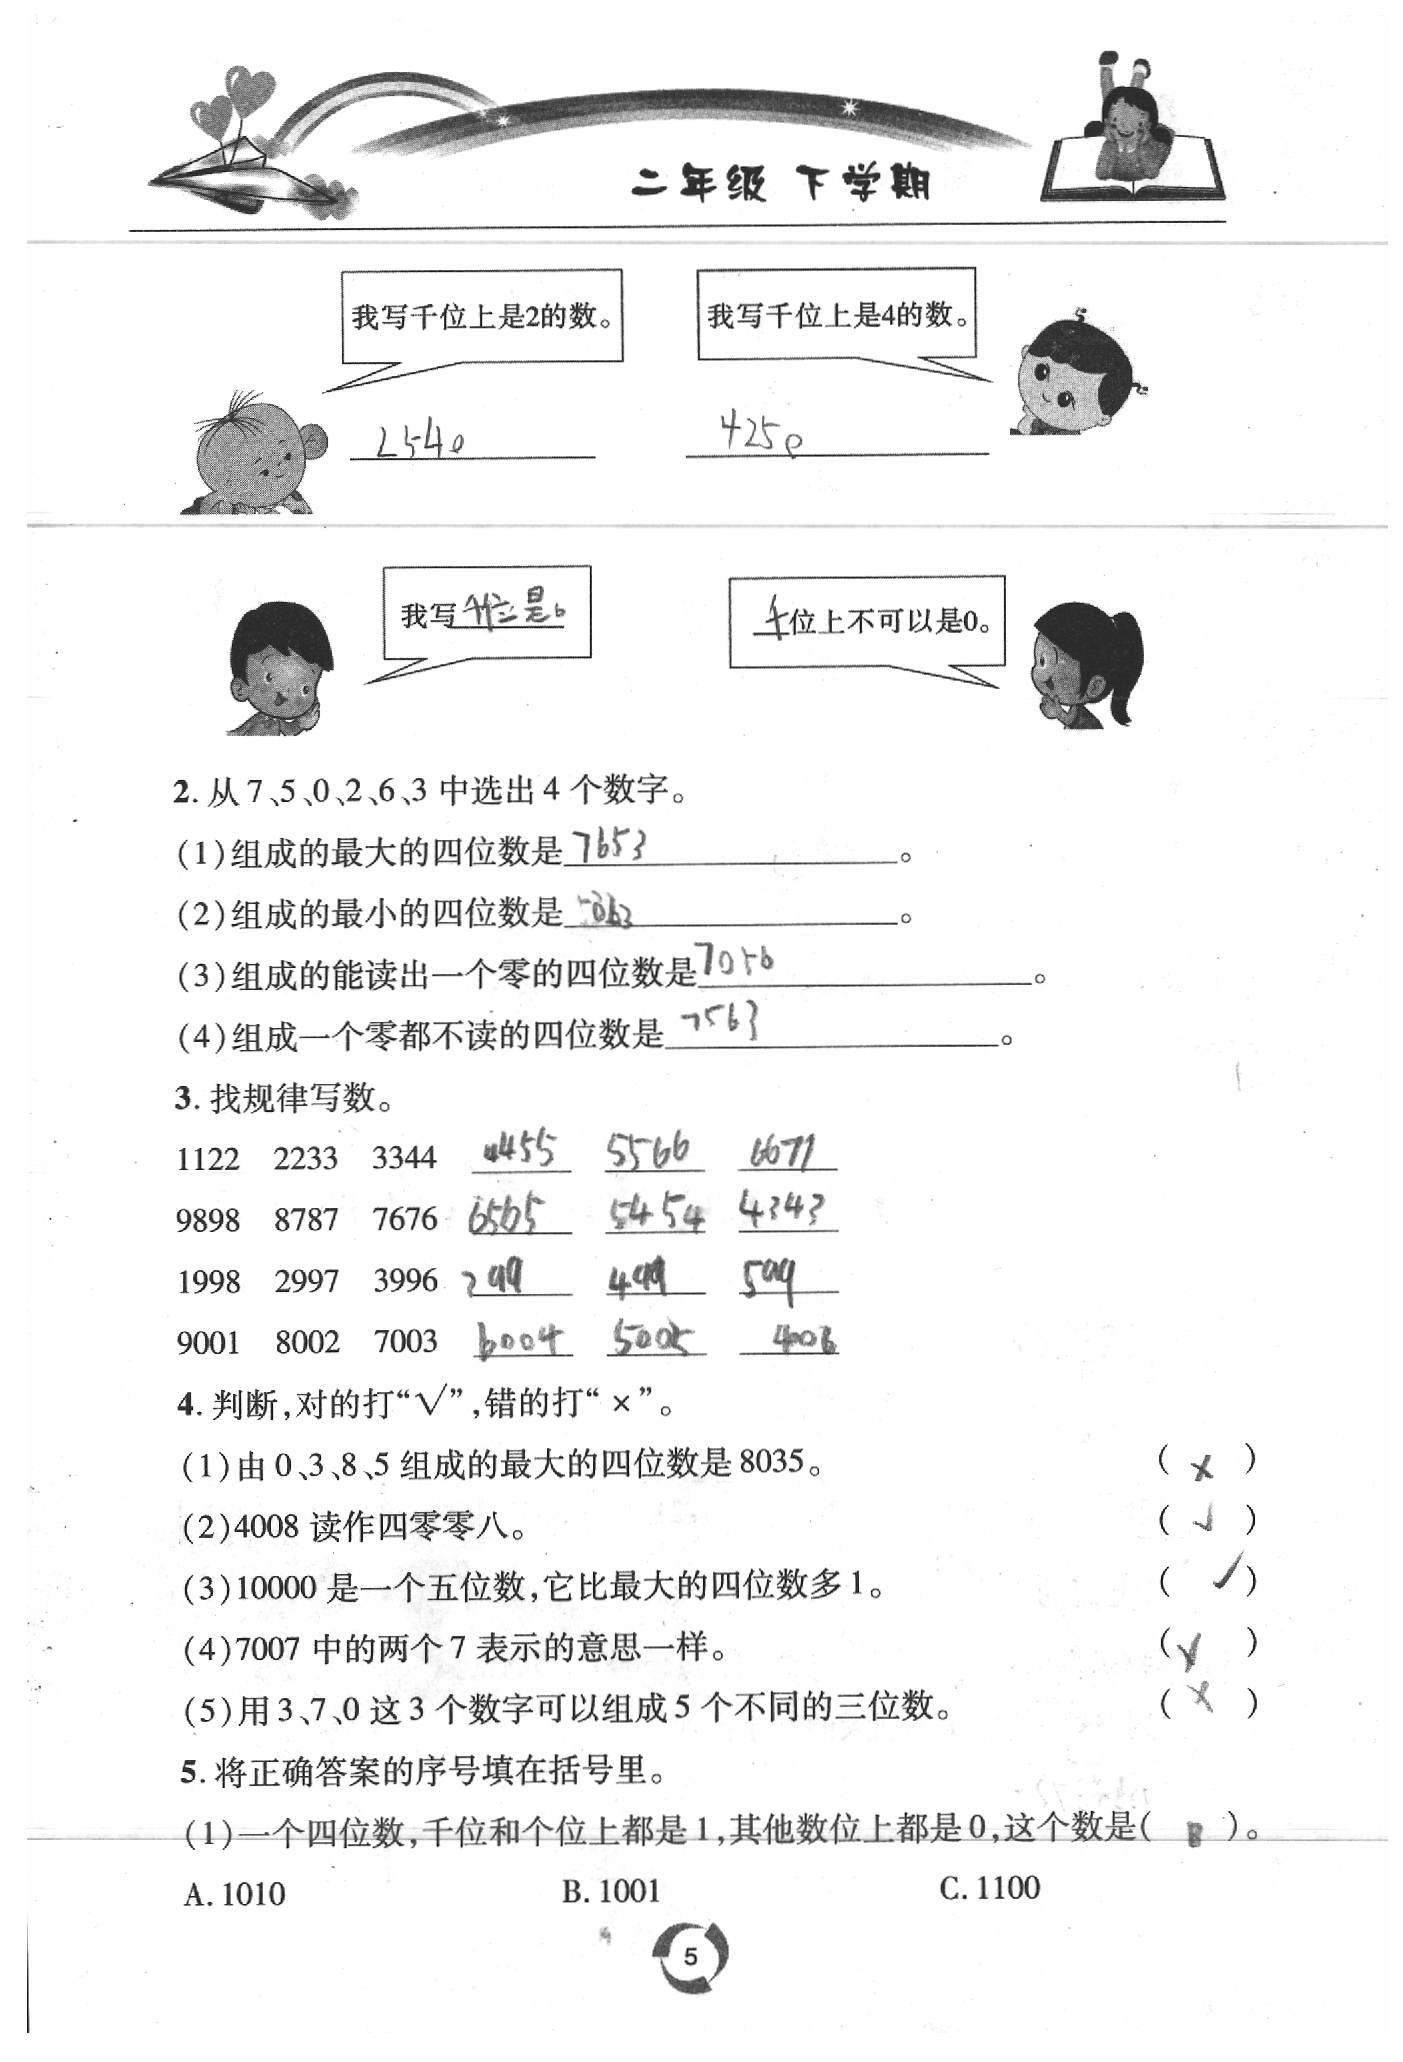 二年级 下学期
我写千位上是2的数。 我写千位上是4的数。
2540 4250
我写千位是6 千位上不可以是0。
2. 从7、5、0、2、6、3中选出4个数字。
(1)组成的最大的四位数是7653。
(2)组成的最小的四位数是。
(3)组成的能读出一个零的四位数是7056。
(4)组成一个零都不读的四位数是7563。
3. 找规律写数。
1122 2233 3344 4455 5566 6677
9898 8787 7676 6565 5454 4343
1998 2997 3996 499 599
9001 8002 7003 6004 5005 4006
4. 判断,对的打“√”,错的打“×”。
(1)由0、3、8、5组成的最大的四位数是8035。 (×)
(2)4008读作四零零八。 (√)
(3)10000是一个五位数,它比最大的四位数多1。 (√)
(4)7007中的两个7表示的意思一样。 ( )
(5)用3、7、0这3个数字可以组成5个不同的三位数。 (×)
5. 将正确答案的序号填在括号里。
(1)一个四位数,千位和个位上都是1,其他数位上都是0,这个数是( B )。
A. 1010 B. 1001 C. 1100
5